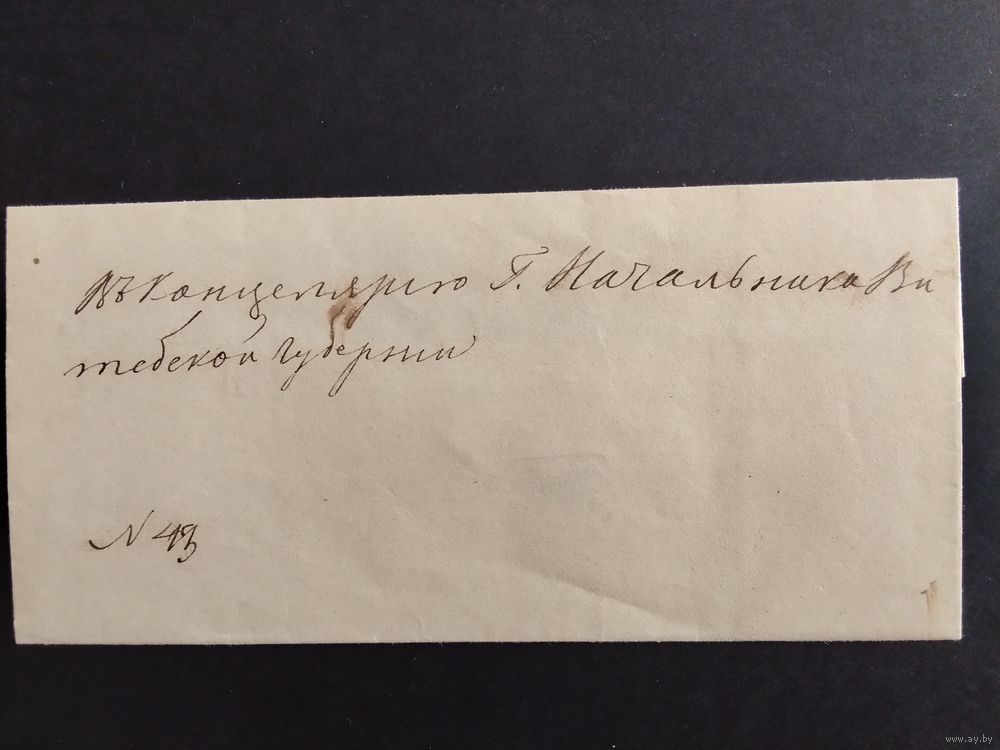 Въ Канцелярію Г. Начальника Ви
тебской губерніи
N 43
www.ay.by